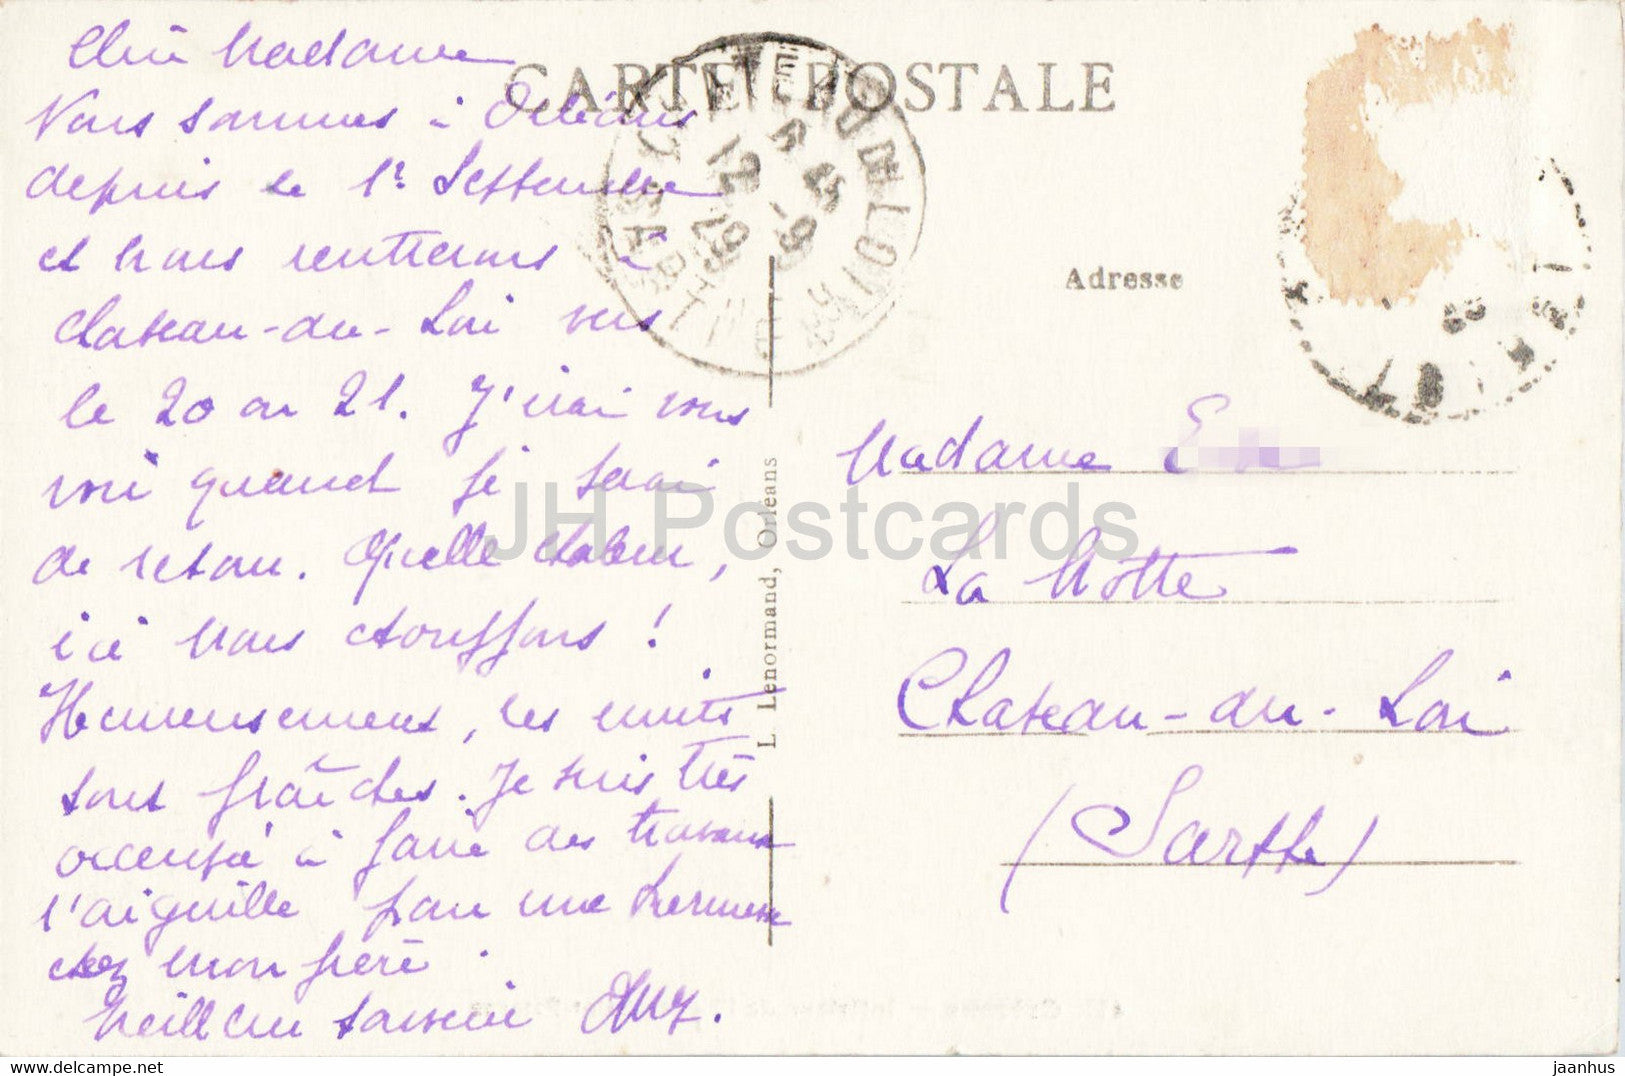 Chère Madame
Nous sommes à Orléans
depuis le 1er Septembre
et nous rentrerons à
Chateau-du-Loir vers
le 20 ou 21. J'irai vous
voir quand je serai
de retour. Quelle chaleur,
ici nous étouffons !
Heureusement, les nuits
sont fraîches. Je suis très
occupée à faire des travaux
l'aiguille pour une kermesse
chez mon frère.
Meilleur souvenir
CARTE POSTALE
Adresse
Madame
La Motte
Chateau-du-Loir
(Sarthe)
L. Lenormand, Orléans
CHATEAU-DU-LOIR
SARTHE
12 -9
JH Postcards
jaanhus @ delcampe.net